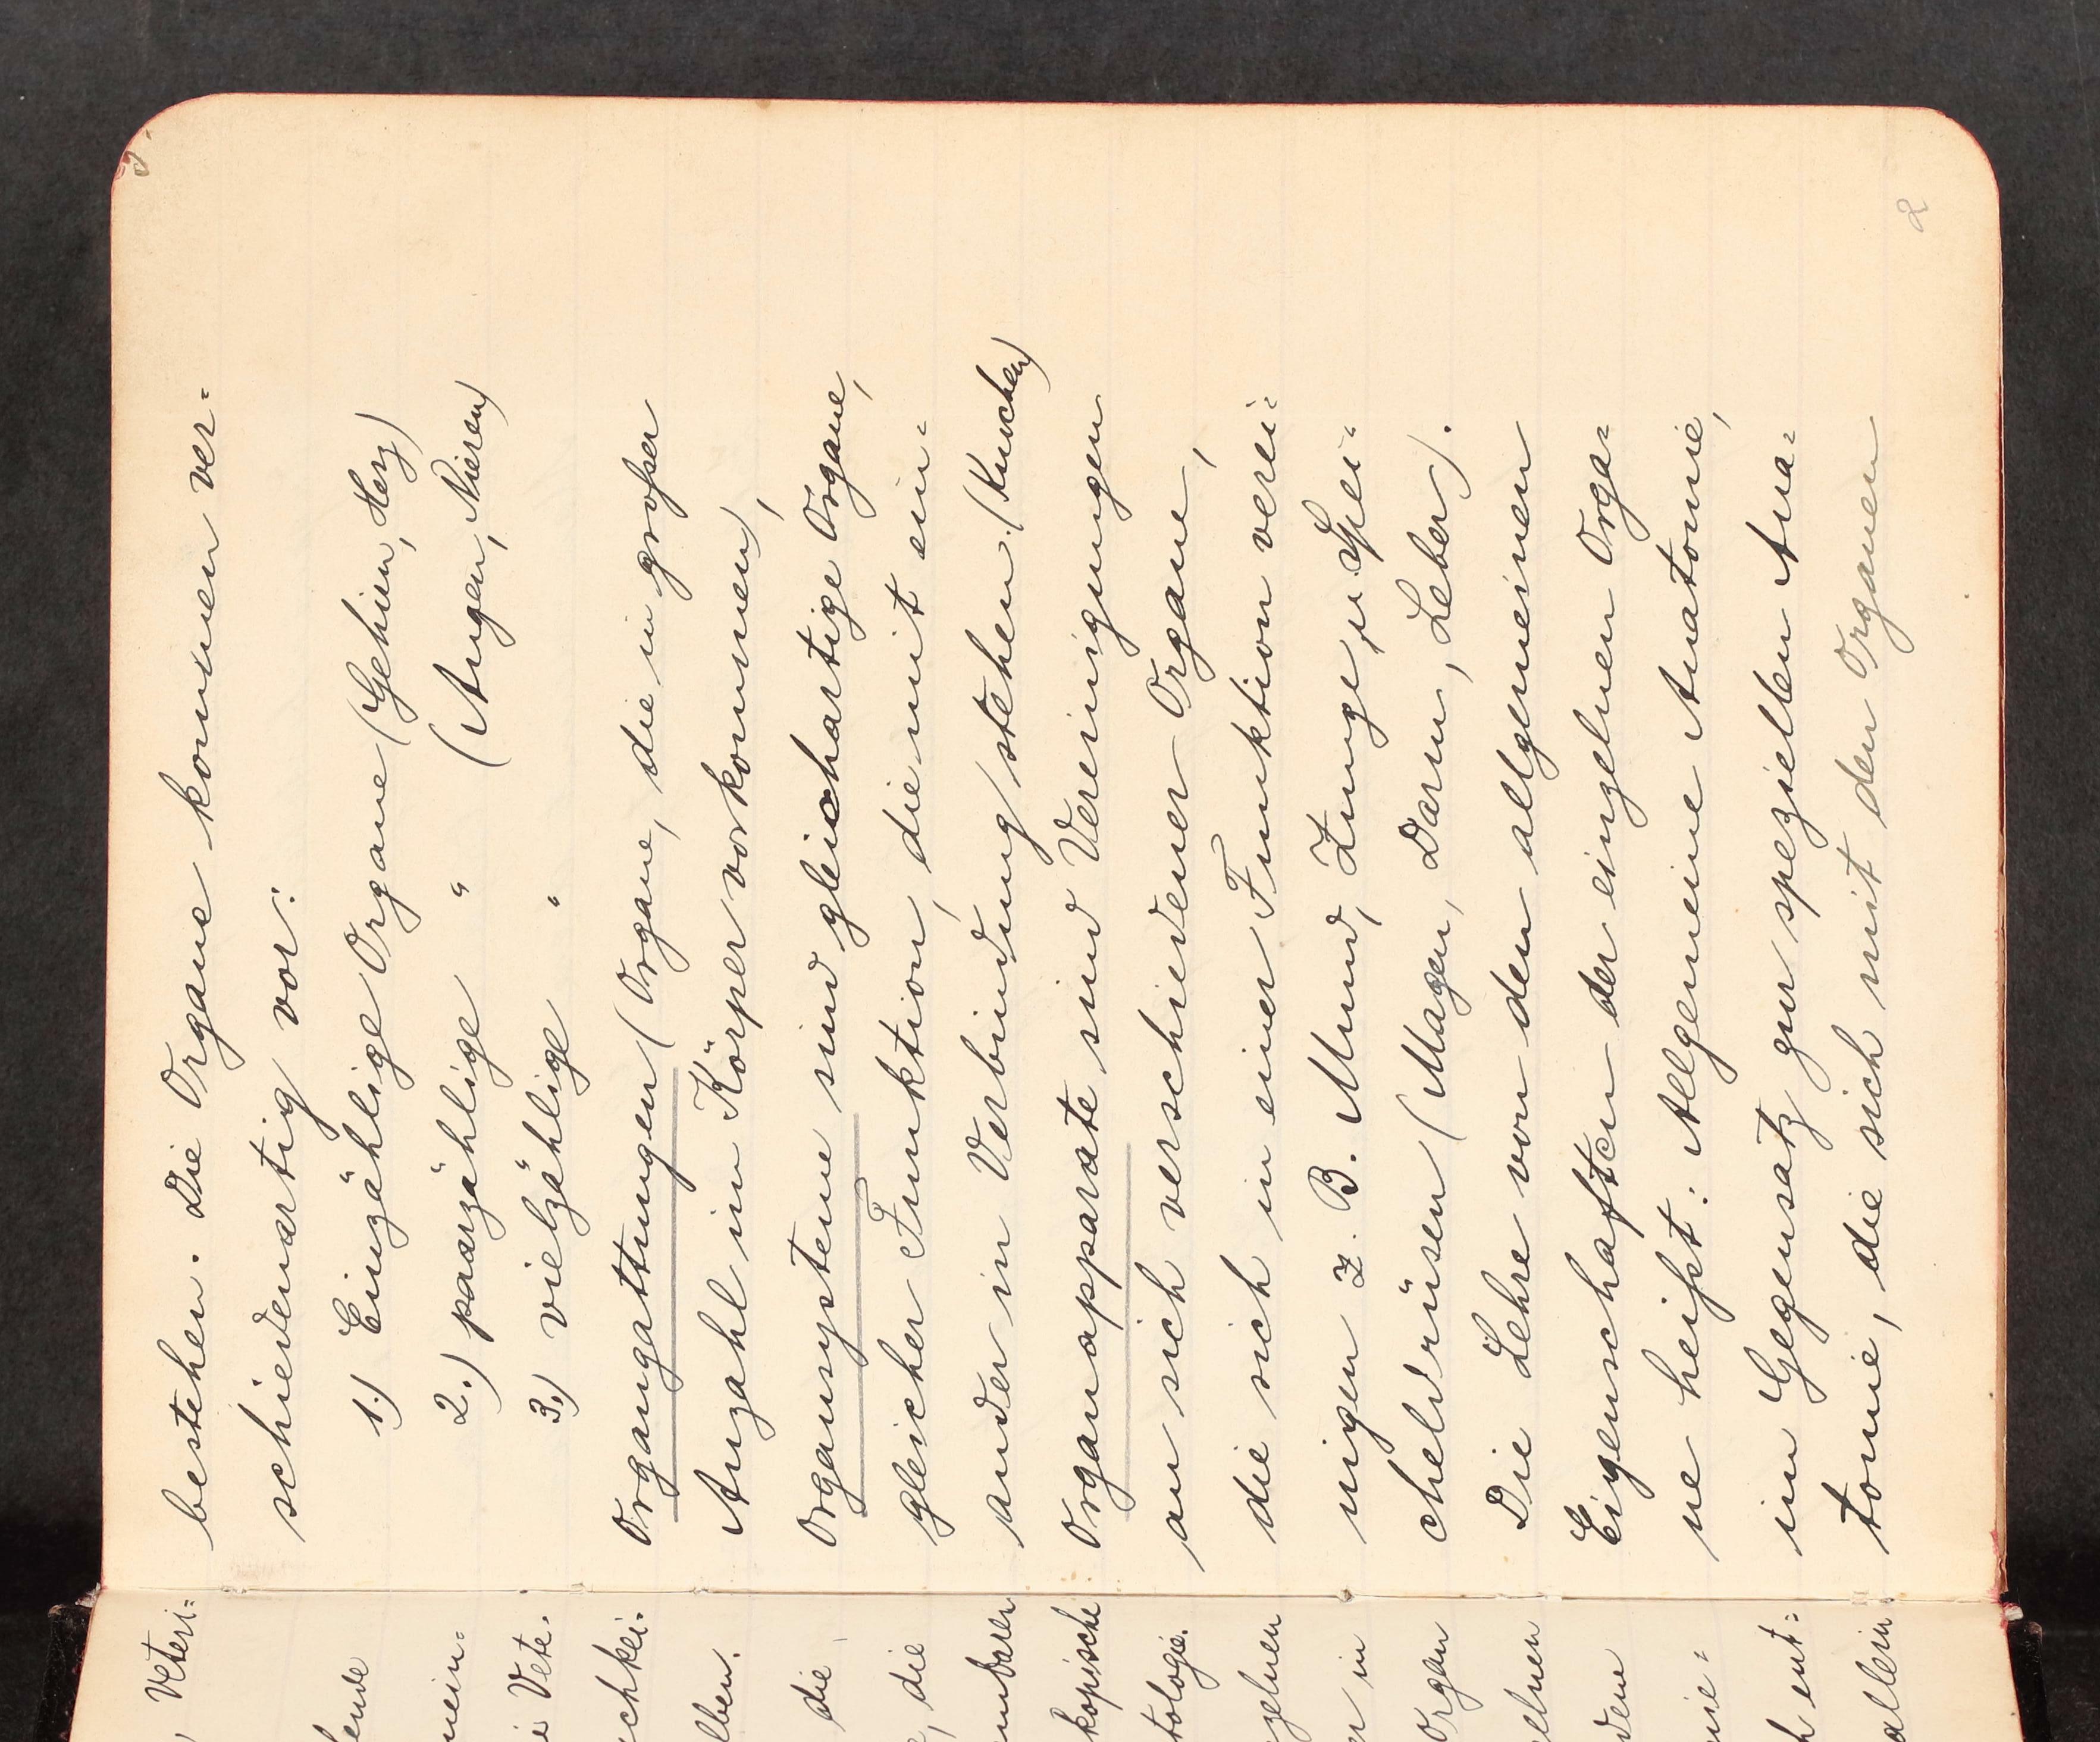 bestehen. Die Organe kommen ver=
schiedenartig vor:
1.) Einzählige Organe (Gehirn, Herz)
2.) paarzählige " (Augen, Nieren)
3.) vielzählige "
Organgattungen (Organe, die in großer
Anzahl im Körper vorkommen),
Organsysteme sind gleichartige Organe,
gleicher Funktion, die mit ein=
ander in Verbindung stehen. (Knochen)
Organapparate sind Vereinigungen
an sich verschiedener Organe,
die sich in einer Funktion verei=
nigen z. B. Mund, Zunge u. Spei=
cheldrüsen (Magen, Darm, Leber).
Die Lehre von den allgemeinen
Eigenschaften der einzelnen Orga=
ne heißt: Allgemeine Anatomie,
im Gegensatz zur speziellen Ana=
tomie, die sich mit den Organen
2
Veteri=
ende
mein=
i Vete.
chkei=
lben.
die
, die
nnbarer
kopische
tologie.
zelnen
er in
Organ
elnen
dem
nie=
h ent=
allein